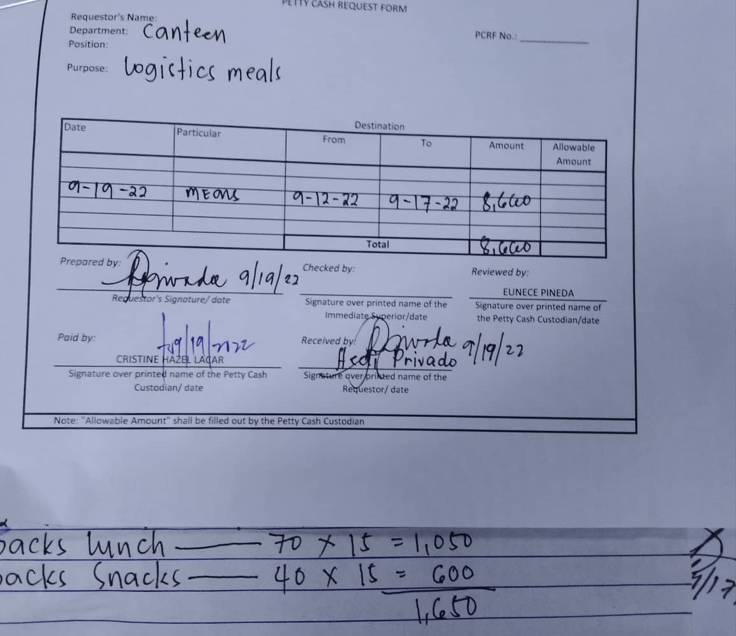 PETTY CASH REQUEST FORM
Requestor's Name:
Department: Canteen
PCRF No.:
Position:
Purpose: Logistics meals
Destination
Date Particular From To Amount Allowable Amount
9-19-22 MEALS 9-12-22 9-17-22 8,600
Total 8,600
Prepared by: 9/19/22 Checked by: Reviewed by:
EUNECE PINEDA
Requestor's Signature/ date
Signature over printed name of the Immediate Superior/date
Signature over printed name of the Petty Cash Custodian/date
Paid by: 9/19/2022
CRISTINE HAZEL LAGAR
Signature over printed name of the Petty Cash Custodian/ date
Received by: 9/19/22
Privado
Signature over printed name of the Requestor/ date
Note: "Allowable Amount" shall be filled out by the Petty Cash Custodian
packs lunch — 70 x 15 = 1,050
packs Snacks — 40 x 15 = 600
1,650